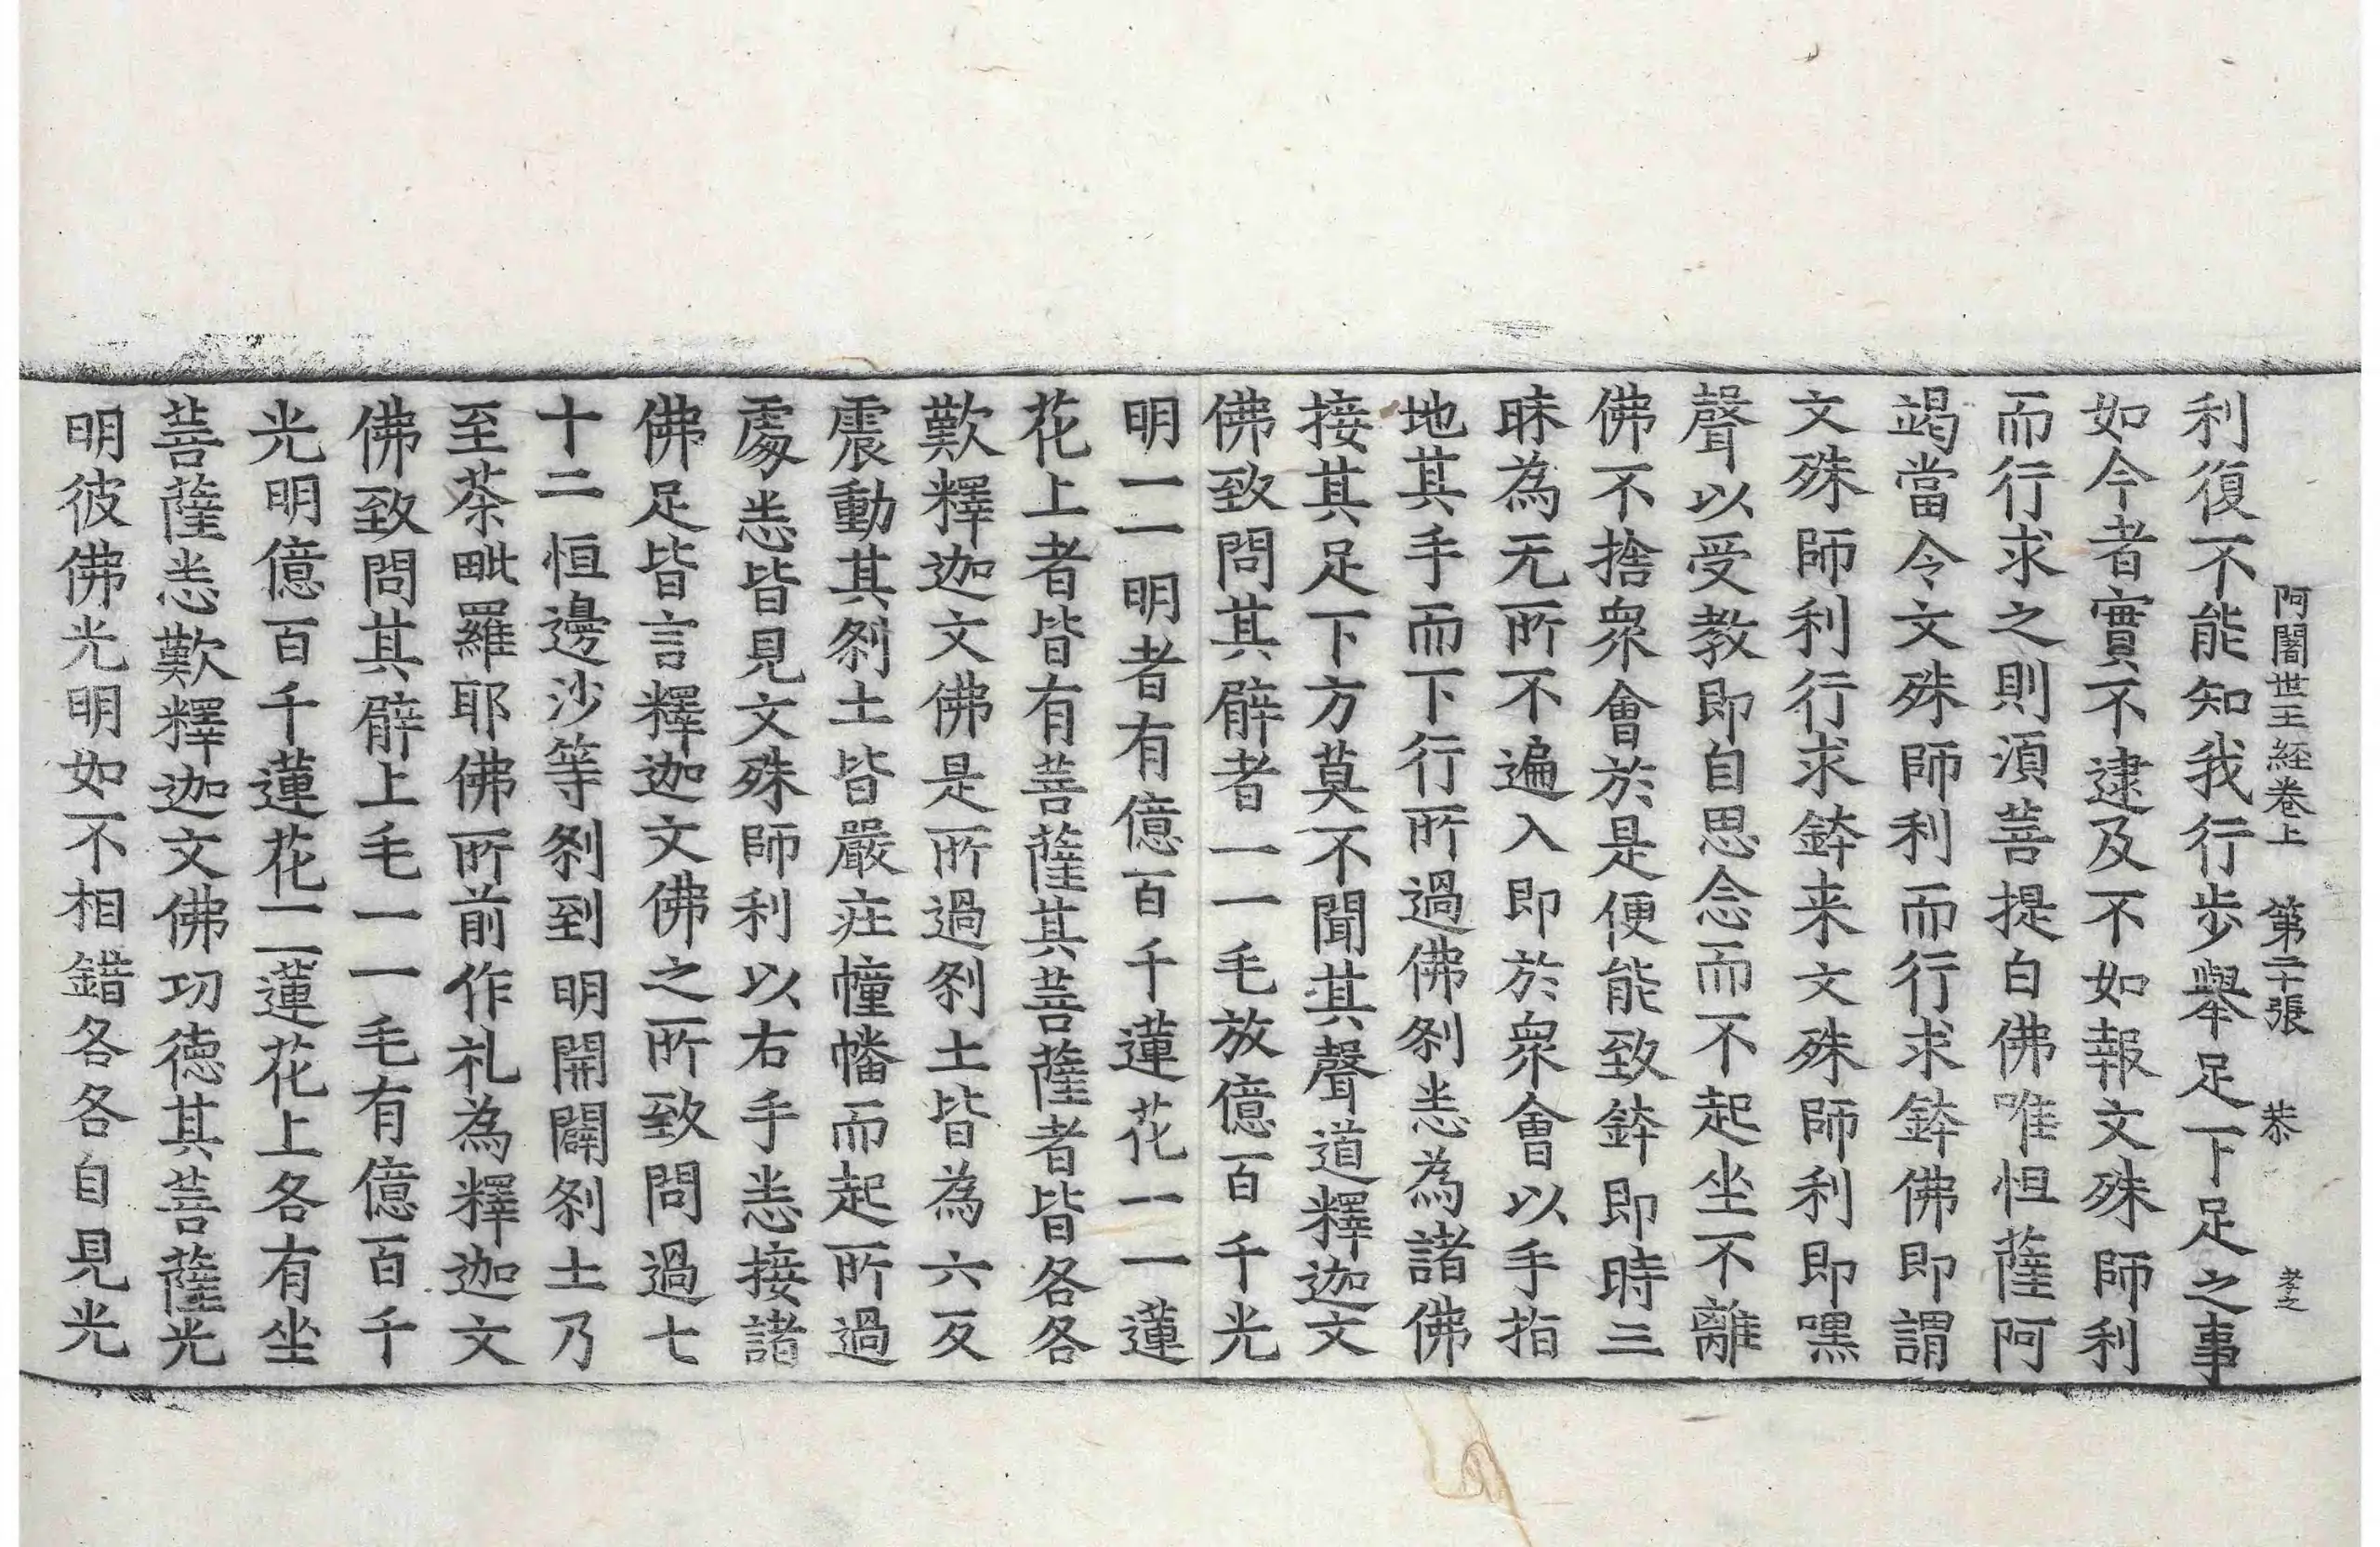 阿闍世王経卷上 第二十張 恭 孝之
利復不能知我行步舉足下足之事
如今者實不逮及不如報文殊師利
而行求之則湏菩提白佛唯怛薩阿
竭當令文殊師利而行求鉢佛即謂
文殊師利行求鉢来文殊師利即嘿
聲以受教即自思念而不起坐不離
佛不捨衆會於是便能致鉢即時三
昧為无所不遍入即於衆會以手指
地其手而下行所過佛刹悉為諸佛
接其足下方莫不聞其聲道釋迦文
佛致問其臂者一一毛放億百千光
明一一明者有億百千蓮花一一蓮
花上者皆有菩薩其菩薩者皆各各
歎釋迦文佛是所過刹土皆為六反
震動其刹土皆嚴庄幢幡而起所過
處悉皆見文殊師利以右手悉接諸
佛足皆言釋迦文佛之所致問過七
十二恒邊沙等刹到明開闢刹土乃
至荼毗羅耶佛所前作礼為釋迦文
佛致問其臂上毛一一毛有億百千
光明億百千蓮花一一蓮花上各有坐
菩薩悉歎釋迦文佛功徳其菩薩光
明彼佛光明如不相錯各各自見光